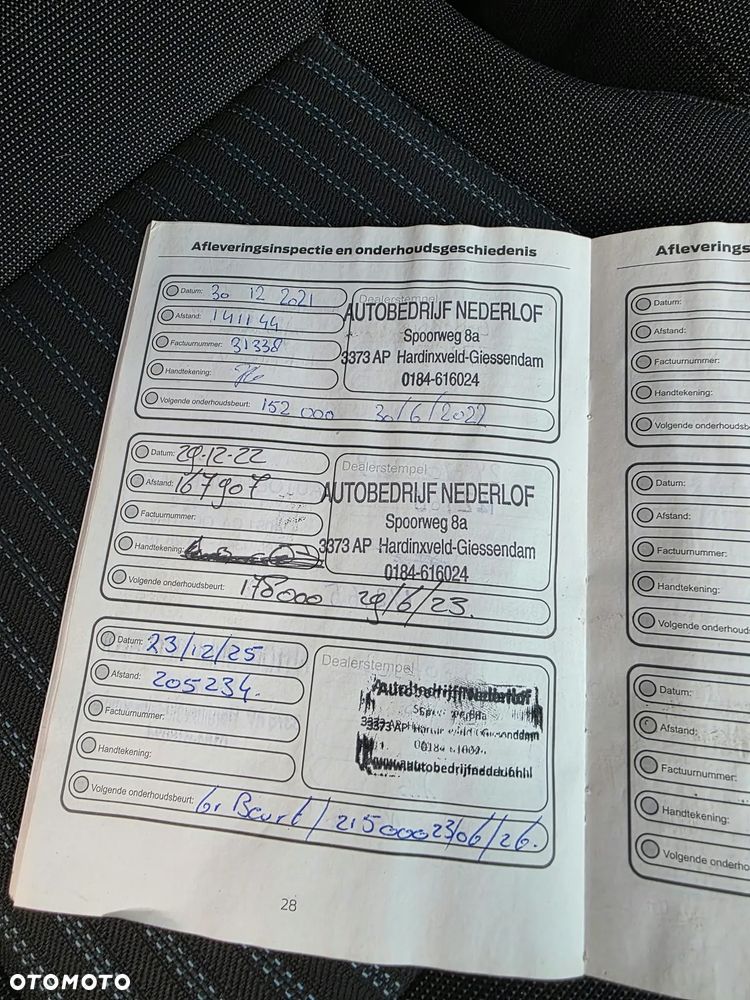 Afleveringsinspectie en onderhoudsgeschiedenis
Datum: 30 12 2021
Afstand: 141144
Factuurnummer: 31338
Handtekening:
Volgende onderhoudsbeurt: 152 000 30/6/2022
Dealerstempel
AUTOBEDRIJF NEDERLOF
Spoorweg 8a
3373 AP Hardinxveld-Giessendam
0184-616024
Datum: 29-12-22
Afstand: 167907
Factuurnummer:
Handtekening:
Volgende onderhoudsbeurt: 178000 29/6/23.
Dealerstempel
AUTOBEDRIJF NEDERLOF
Spoorweg 8a
3373 AP Hardinxveld-Giessendam
0184-616024
Datum: 23/12/25
Afstand: 205234.
Factuurnummer:
Handtekening:
Volgende onderhoudsbeurt: Gr Beurt / 215000 23/06/26.
Dealerstempel
Autobedrijf Nederlof
3373 AP
28
Afleverings
Datum:
Afstand:
Factuurnummer:
Handtekening:
Volgende onderhoudsb
Datum:
Afstand:
Factuurnummer:
Handtekening:
Volgende onderhoud
Datum:
Afstand:
Factuurnummer:
Handtekening:
Volgende onderho
OTOMOTO